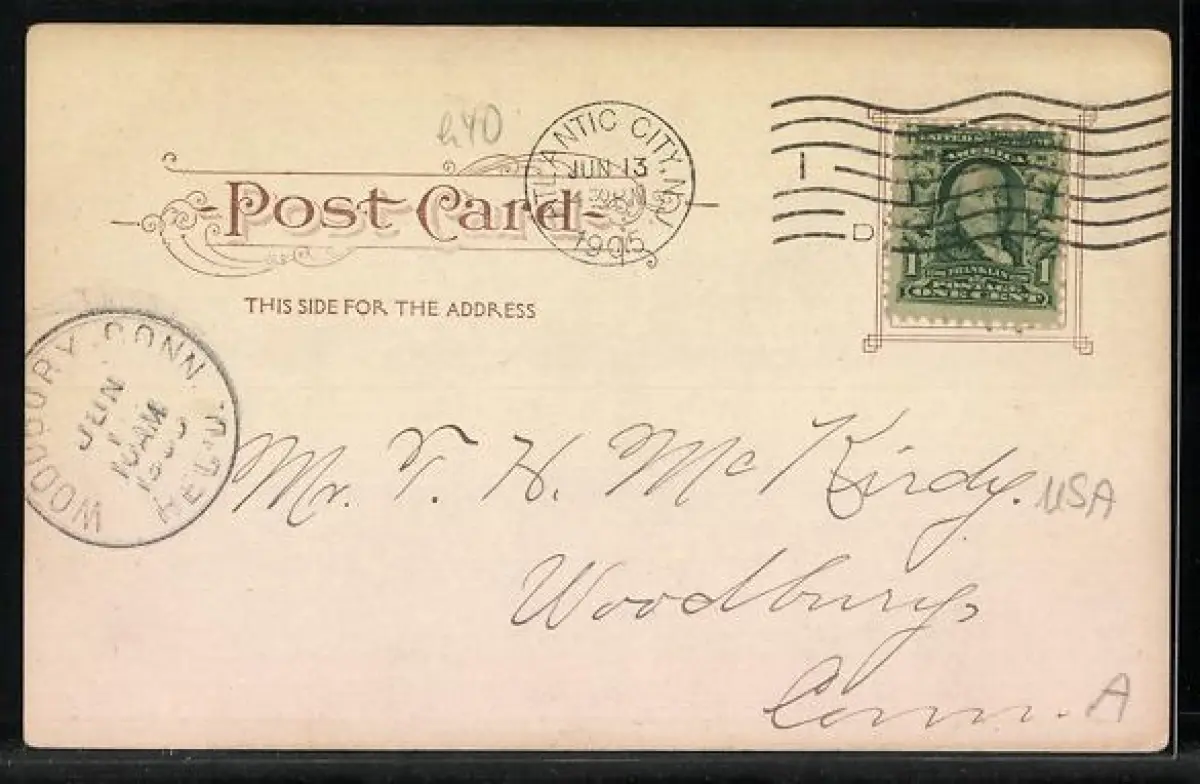 h40
ATLANTIC CITY, N.J.
JUN 13
1905
I
D
UNITED STATES OF
AMERICA
1 FRANKLIN 1
POSTAGE
ONE CENT
Post Card
THIS SIDE FOR THE ADDRESS
WOODBURY CONN.
JUN
10 AM
REC'D.
Mr. T. H. McKirdy.
USA
Woodbury,
Conn.
A